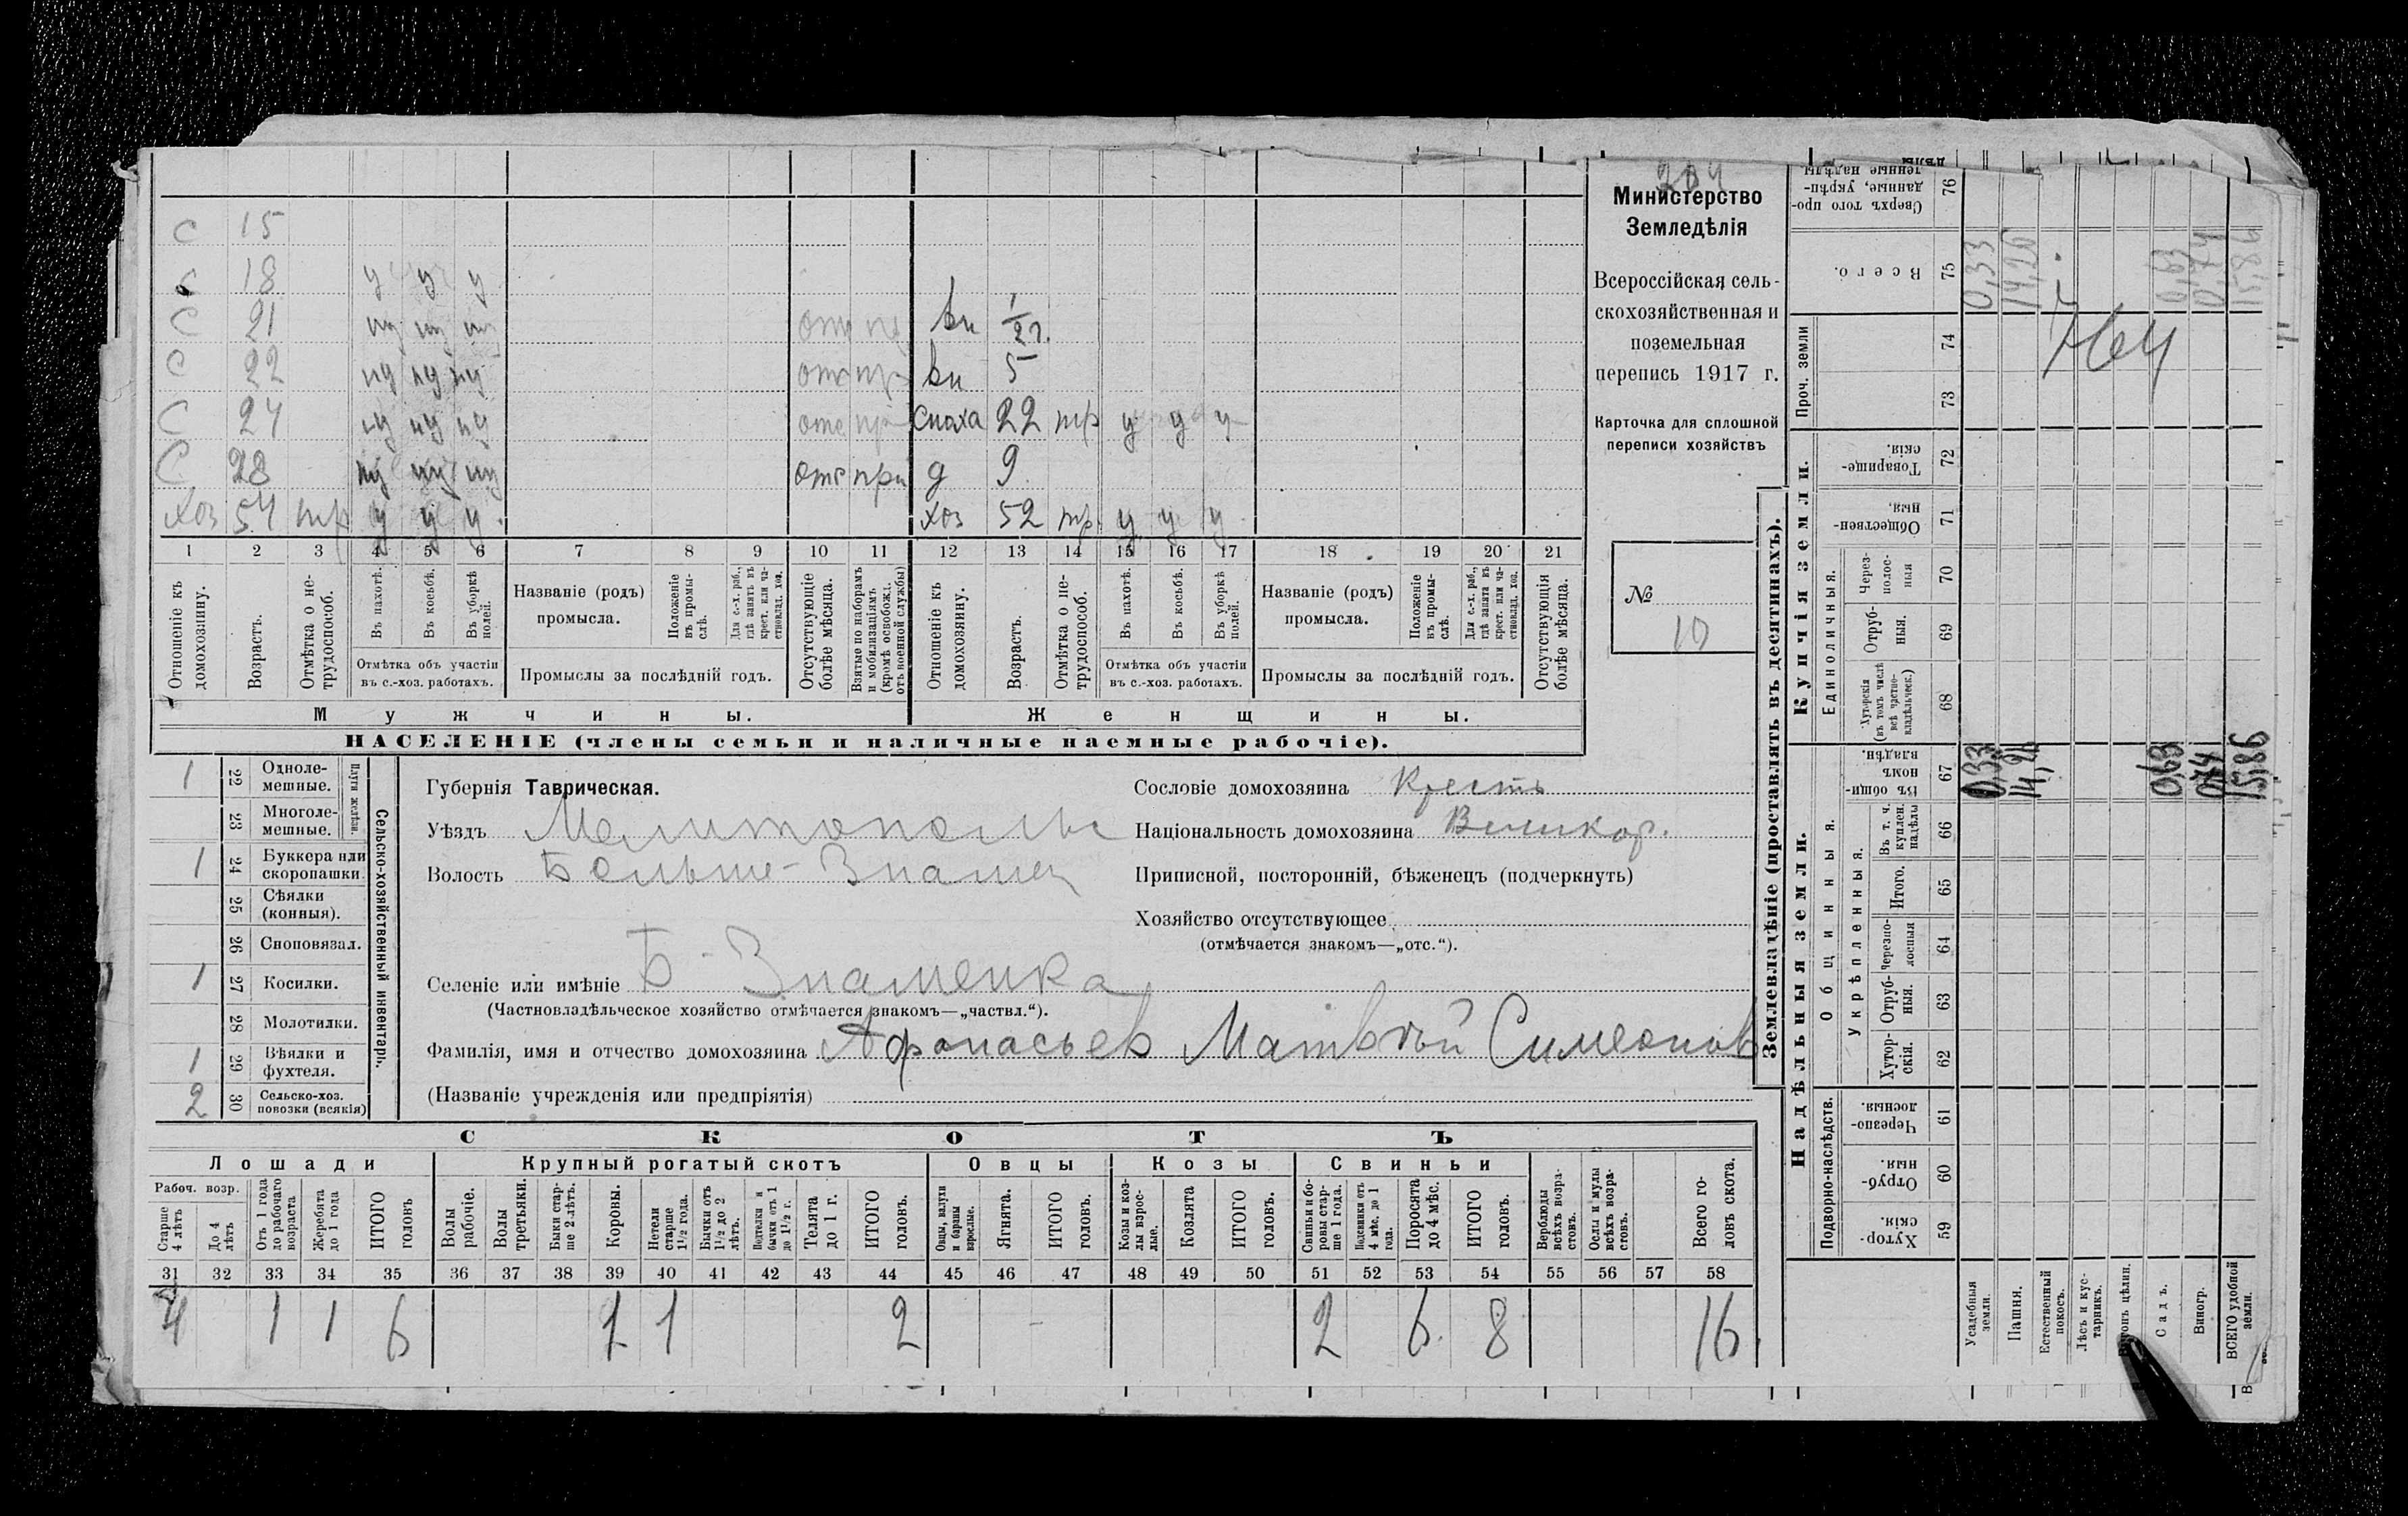 С 15
С 18 у у у
С 21 ну ну ну отс вн 1/2 г.
С 22 ну ну ну отс пр вн 5
С 24 ну ну ну отс пр сноха 22 тр у у у
С 28 ну ну ну отс при д 9
Хоз 54 тр у у у хоз 52 тр. у у у
1 2 3 4 5 6 7 8 9 10 11 12 13 14 15 16 17 18 19 20 21
Отношеніе къ домохозяину.
Возрастъ.
Отмѣтка о нетрудоспособ.
Въ пахотѣ.
Въ косьбѣ.
Въ уборкѣ полей.
Отмѣтка объ участіи въ с.-хоз. работахъ.
Названіе (родъ) промысла.
Положеніе въ промыслѣ.
Для с.-х. раб., гдѣ занятъ въ крест. или частновлад. хоз.
Промыслы за послѣдній годъ.
Отсутствующіе болѣе мѣсяца.
Взятые по наборамъ и мобилизаціямъ (кромѣ освобожд. отъ военной службы)
Отношеніе къ домохозяину.
Возрастъ.
Отмѣтка о нетрудоспособ.
Въ пахотѣ.
Въ косьбѣ.
Въ уборкѣ полей.
Отмѣтка объ участіи въ с.-хоз. работахъ.
Названіе (родъ) промысла.
Положеніе въ промыслѣ.
Для с.-х. раб., гдѣ занята въ крест. или частновлад. хоз.
Промыслы за послѣдній годъ.
Отсутствующія болѣе мѣсяца.
Мужчины.
Женщины.
НАСЕЛЕНІЕ (члены семьи и наличные наемные рабочіе).
204
Министерство
Земледѣлія
Всероссійская сель-
скохозяйственная и
поземельная
перепись 1917 г.
Карточка для сплошной
переписи хозяйствъ
№
10
1 22 Однолемешные.
23 Многолемешные.
Плуги желѣзн.
1 24 Буккера или скоропашки.
25 Сѣялки (конныя).
26 Сноповязал.
1 27 Косилки.
28 Молотилки.
1 29 Вѣялки и фухтеля.
2 30 Сельско-хоз. повозки (всякія)
Сельско-хозяйственный инвентарь.
Губернія Таврическая.
Уѣздъ Мелитопольс
Волость Больше-Знамен
Селеніе или имѣніе Б Знаменка
(Частновладѣльческое хозяйство отмѣчается знакомъ—„частвл.“).
Фамилія, имя и отчество домохозяина Афонасьев Матвѣй Симеонов
(Названіе учрежденія или предпріятія)
Сословіе домохозяина Крестъ
Національность домохозяина Великор.
Приписной, посторонній, бѣженецъ (подчеркнуть)
Хозяйство отсутствующее
(отмѣчается знакомъ—„отс.“).
СКОТЪ
Лошади Крупный рогатый скотъ Овцы Козы Свиньи
Рабоч. возр.
Старше 4 лѣтъ
До 4 лѣтъ
Отъ 1 года до рабочаго возраста
Жеребята до 1 года
ИТОГО головъ
Волы рабочіе.
Волы третьяки.
Быки старше 2 лѣтъ.
Коровы.
Нетели старше 1½ года.
Бычки отъ 1½ до 2 лѣтъ.
Подтелки и бычки отъ 1 до 1½ г.
Телята до 1 г.
ИТОГО головъ.
Овцы, валухи и бараны взрослые.
Ягнята.
ИТОГО головъ.
Козы и козлы взрослые.
Козлята
ИТОГО головъ.
Свиньи и боровы старше 1 года.
Подсвинки отъ 4 мѣс. до 1 года.
Поросята до 4 мѣс.
ИТОГО головъ.
Верблюды всѣхъ возрастовъ.
Ослы и мулы всѣхъ возрастовъ.
Всего головъ скота.
31 32 33 34 35 36 37 38 39 40 41 42 43 44 45 46 47 48 49 50 51 52 53 54 55 56 57 58
4 1 1 6 1 1 2 2 6 8 16
Землевладѣніе (проставлять въ десятинахъ).
Надѣльныя земли.
Купчія земли.
Проч. земли
Подворно-наслѣдств.
Общинныя.
Укрѣпленныя.
Единоличныя.
Сверхъ того проданные, укрѣпленные надѣлы 76
Всего. 75
74
73
Товарищескія. 72
Общественныя. 71
Черезполосныя 70
Отрубныя. 69
Хуторскія (въ томъ числѣ всѣ частновладѣльческ.) 68
Въ общинномъ владѣн. 67
Въ т. ч. куплен. надѣлы 66
Итого. 65
Черезполосныя 64
Отрубныя. 63
Хуторскія. 62
Черезполосныя. 61
Отрубныя. 60
Хуторскія. 59
Усадебныя земли. 0,33 0,33
Пашня. 14,26 14,26
Естественный покосъ.
Лѣсъ и кустарникъ.
Выгонъ цѣлин.
Садъ. 0,63 0,63
Виногр. 0,74 0,74
ВСЕГО удобной земли. 15,86 15,86
764